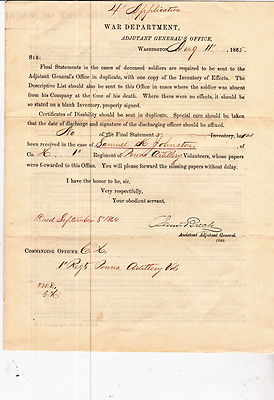 4" Application
WAR DEPARTMENT,
ADJUTANT GENERAL'S OFFICE,
WASHINGTON, Aug 11 1865.
SIR:
Final Statements in the cases of deceased soldiers are required to be sent to the
Adjutant General's Office in duplicate, with one copy of the Inventory of Effects. The
Descriptive List should also be sent to this Office in cases where the soldier was absent
from his Company at the time of his death. Where there were no effects, it should be
so stated on a blank Inventory, properly signed.
Certificates of Disability should be sent in duplicate. Special care should be taken
that the date of discharge and signature of the discharging officer should be affixed.
No of the Final Statement or Inventory, has
been received in the case of Samuel K Johnston, of
Co. K, 1st Regiment of Penna Artillery Volunteers, whose papers
were forwarded to this Office. You will please forward the missing papers without delay.
I have the honor to be, sir,
Very respectfully,
Your obedient servant,
Died September 5" 1864
Assistant Adjutant General.
COMMANDING OFFICER Co K,
1st Regt Penna Artillery Vols